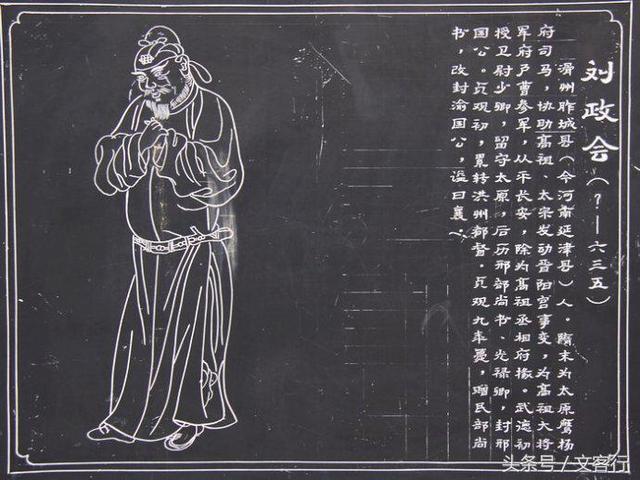 刘政会（？——六三五）
滑州胙城县（今河南延津县）人。隋末为太原鹰扬
府司马，协助高祖、太宗发动晋阳宫事变，为高祖大将
军府户曹参军，从平长安，除为高祖丞相府掾。武德初
授卫尉少卿，留守太原，后历刑部尚书、光禄卿，封邢
国公。贞观初，累转洪州都督。贞观九年薨，赠民部尚
书，改封渝国公，谥曰襄。
头条号／文客行